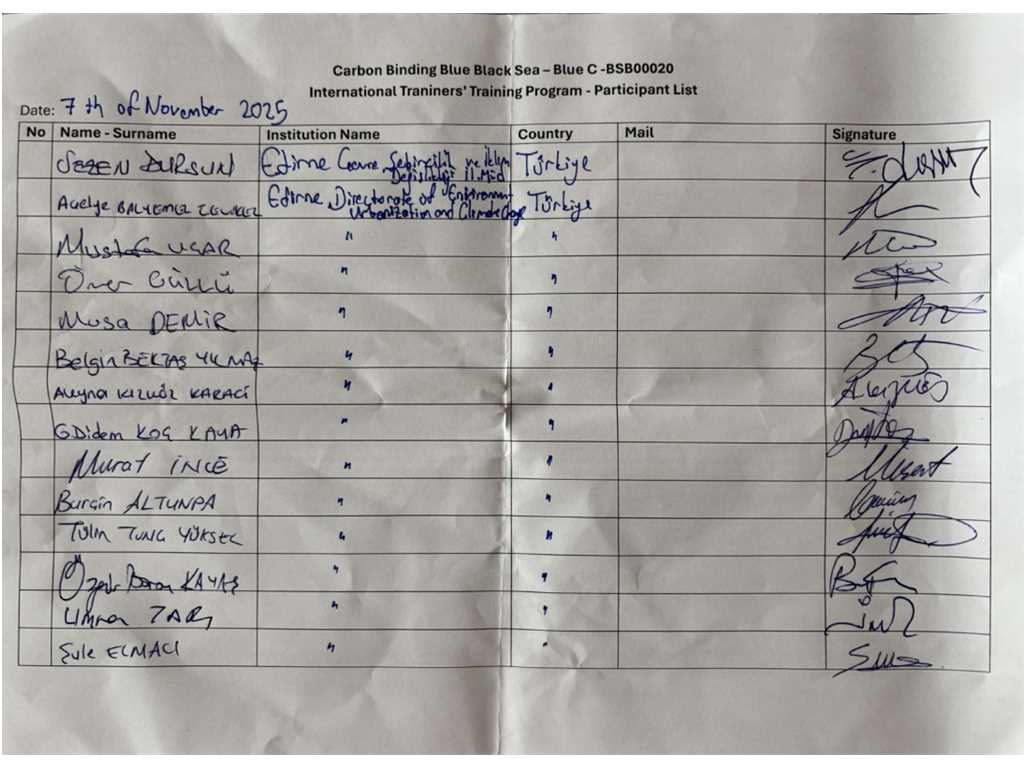 Carbon Binding Blue Black Sea – Blue C -BSB00020
International Traniners' Training Program - Participant List
Date: 7 th of November 2025
No Name - Surname Institution Name Country Mail Signature
SEZEN DURSUN Edirne Çevre, Şehircilik ve İklim Değişikliği İl Müd Türkiye
BALYEMEZ Edirne Directorate of Environment Urbanization and Climate Change Türkiye
Mustafa UÇAR " "
Ömer GÜLLÜ " "
Musa DEMİR " "
Belgin BEKTAŞ YILMAZ " "
Aleyna KIZILGÖZ KARACİ " "
G Didem KOÇ KAYA " "
Murat İNCE " "
Burçin ALTUNPA " "
Tülin TUNÇ YÜKSEL " "
" "
Umran " "
Şule ELMACI " "